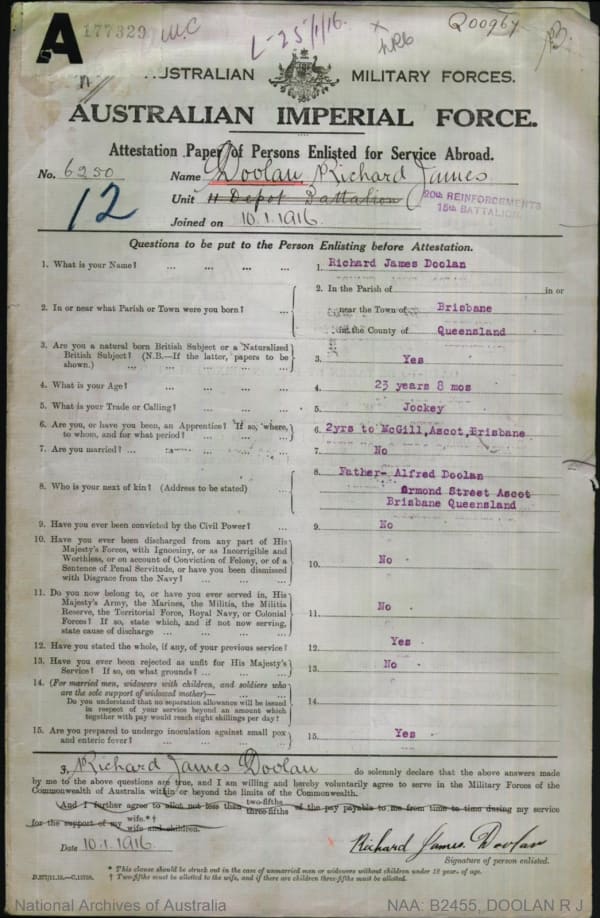 A 177329 M.C L-25/1/16. x NR6 Q00967 B.
AUSTRALIAN MILITARY FORCES.
AUSTRALIAN IMPERIAL FORCE.
Attestation Paper of Persons Enlisted for Service Abroad.
No. 6250 Name Doolan Richard James
12 Unit 11 Depot Battalion 20th REINFORCEMENTS
15th BATTALION
Joined on 10.1.1916.
Questions to be put to the Person Enlisting before Attestation.
1. What is your Name? ... ... ... ... 1. Richard James Doolan
2. In or near what Parish or Town were you born? ... 2. In the Parish of in or
near the Town of Brisbane
in the County of Queensland
3. Are you a natural born British Subject or a Naturalized
British Subject? (N.B.—If the latter, papers to be
shown.) ... ... ... ... 3. Yes
4. What is your Age? ... ... ... ... 4. 23 years 8 mos
5. What is your Trade or Calling? ... ... ... 5. Jockey
6. Are you, or have you been, an Apprentice? If so, where,
to whom, and for what period? ... ... ... 6. 2yrs to McGill,Ascot,Brisbane
7. Are you married? ... ... ... ... 7. No
8. Who is your next of kin? (Address to be stated) ... 8. Father- Alfred Doolan
Ormond Street Ascot
Brisbane Queensland
9. Have you ever been convicted by the Civil Power? ... 9. No
10. Have you ever been discharged from any part of His
Majesty's Forces, with Ignominy, or as Incorrigible and
Worthless, or on account of Conviction of Felony, or of a
Sentence of Penal Servitude, or have you been dismissed
with Disgrace from the Navy? ... ... ... 10. No
11. Do you now belong to, or have you ever served in, His
Majesty's Army, the Marines, the Militia, the Militia
Reserve, the Territorial Force, Royal Navy, or Colonial
Forces? If so, state which, and if not now serving,
state cause of discharge ... ... ... ... 11. No
12. Have you stated the whole, if any, of your previous service? 12. Yes
13. Have you ever been rejected as unfit for His Majesty's
Service? If so, on what grounds? ... ... ... 13. No
14. (For married men, widowers with children, and soldiers who
are the sole support of widowed mother)—
Do you understand that no separation allowance will be issued
in respect of your service beyond an amount which
together with pay would reach eight shillings per day? 14.
15. Are you prepared to undergo inoculation against small pox
and enteric fever? ... ... ... ... 15. Yes
I, Richard James Doolan do solemnly declare that the above answers made
by me to the above questions are true, and I am willing and hereby voluntarily agree to serve in the Military Forces of the
Commonwealth of Australia within or beyond the limits of the Commonwealth.
And I further agree to allot not less than two-fifths three-fifths of the pay payable to me from time to time during my service
for the support of my wife.*†
wife and children.
Date 10.1.1916. Richard James Doolan
Signature of person enlisted.
* This clause should be struck out in the case of unmarried men or widowers without children under 18 years of age.
† Two-fifths must be allotted to the wife, and if there are children three-fifths must be allotted.
National Archives of Australia NAA: B2455, DOOLAN R J